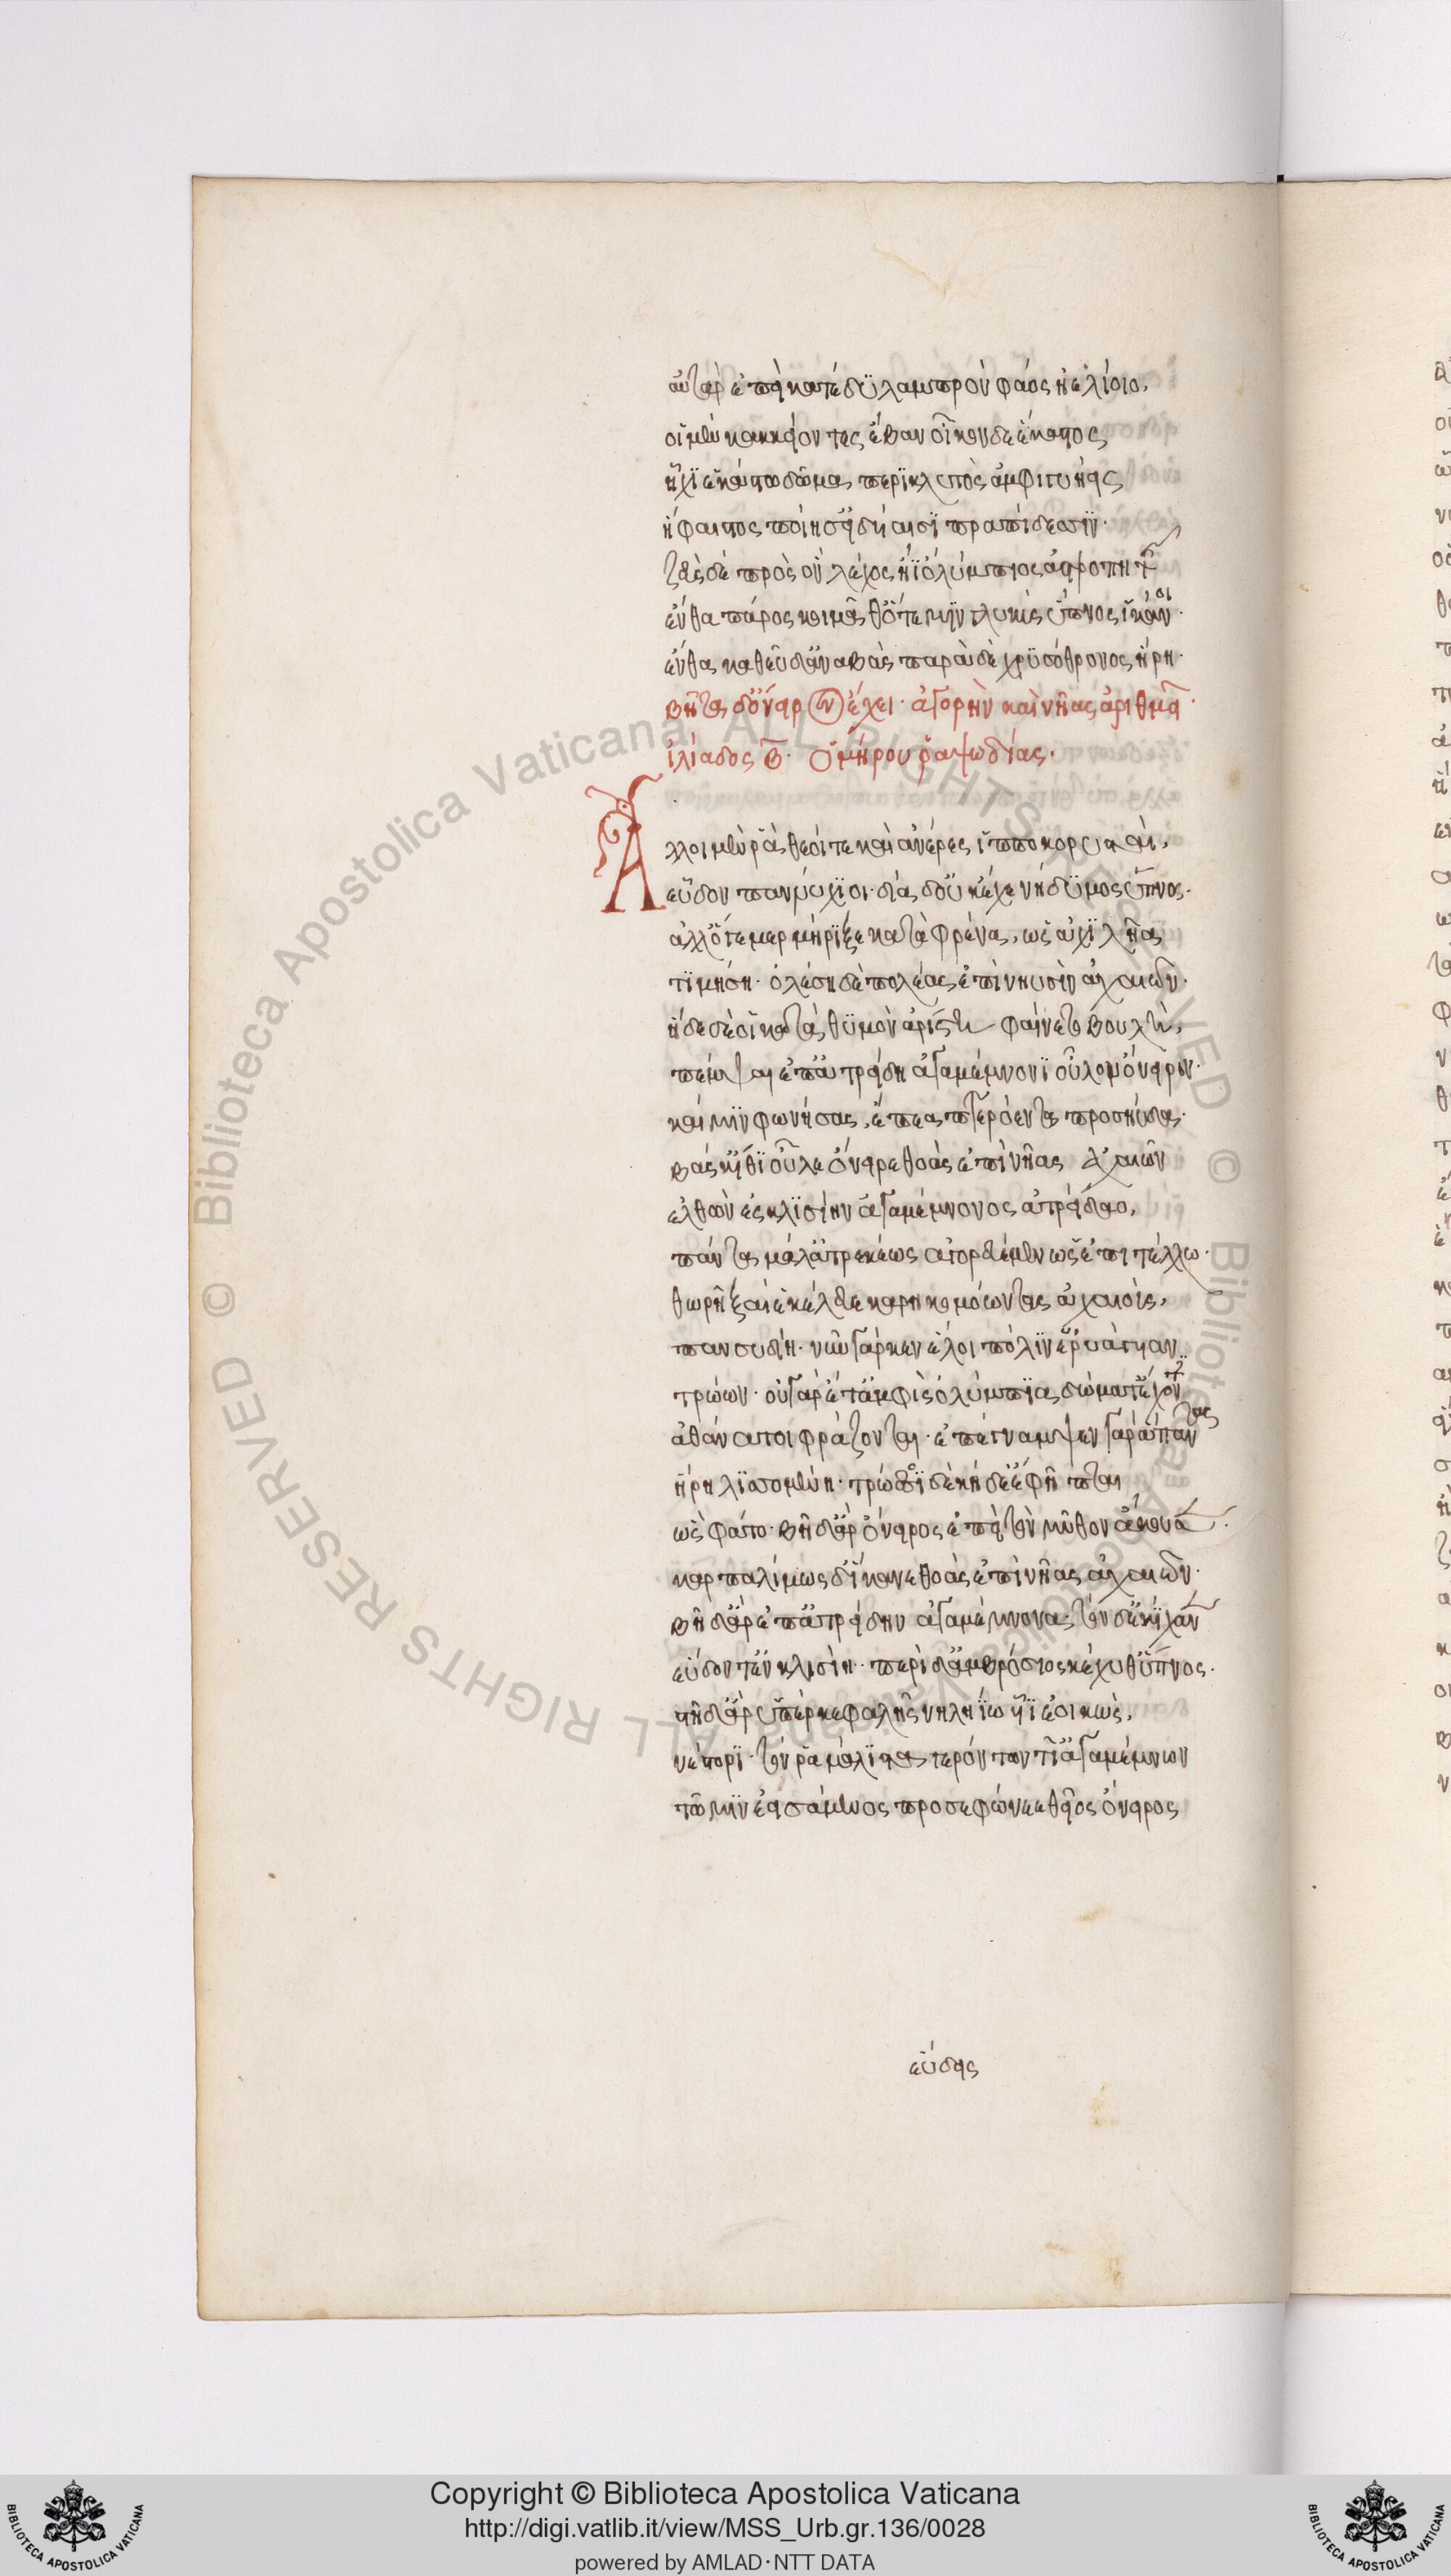 αὐτὰρ ἐπεὶ κατέδϋ λαμπρὸν φάος ἠελίοιο,
οἱ μὲν κακκείοντες ἔβαν οἶκον δὲ ἕκαστος
ἧχϊ ἑκάστω δῶμα περϊκλυτὸς ἀμφιγυήεις
ἥφαιστος ποίησ' εἰδυίαισϊ πραπίδεσσϊν·
ζεὺς δὲ πρὸς ὃν λέχος ἤϊ' ὀλύμπιος ἀστεροπητής
ἔνθα πάρος κοιμᾶθ' ὅτε μϊν γλυκὺς ὕπνος ἱκάνοι·
ἔνθα καθεῦδ' ἀναβὰς παρὰ δὲ χρϋσόθρονος ἥρη·
βῆτα δ' ὄνειρον ἔχει· ἀγορὴν καὶ νῆας ἀριθμεῖ·
ἰλιάδος β· Ὁμήρου ῥαψωδίας·
Ἄλλοι μέν ῥα θεοί τε καὶ ἀνέρες ἱπποκορυσταὶ,
εὗδον παννύχϊοι· δία δ' οὐκ ἔχε νήδϋμος ὕπνος·
ἀλλ' ὅγε μερμήρϊξε κατὰ φρένα, ὡς ἀχϊλῆα
τϊμήση· ὀλέση δὲ πολέας ἐπὶ νηυσὶν ἀχαιῶν·
ἥδε δέ οἱ κατὰ θϋμὸν ἀρίστη φαίνετο βουλὴ,
πέμψαι ἐπ' ἀτρείδη ἀγαμέμνονϊ οὖλον ὄνειρον·
καί μϊν φωνήσας, ἔπεα πτερόεντα προσηύδα·
βάσκ' ἴθϊ οὖλε ὄνειρε θοὰς ἐπὶ νῆας ἀχαιῶν
ἐλθὼν ἐς κλϊσίην ἀγαμέμνονος ἀτρείδαο,
πάντα μάλ' ἀτρεκέως ἀγορευέμεν ὡς ἐπιτέλλω·
θωρῆξαί ἑ κέλευε καρηκομόωντας ἀχαιοὺς,
πανσυδίη· νῦν γάρ κεν ἕλοι πόλϊν εὐρυάγυιαν
τρώων· οὐ γὰρ ἔτ' ἀμφὶς ὀλύμπϊα δώματ' ἔχοντες
ἀθάνατοι φράζονται· ἐπέγναμψεν γὰρ ἅπαντας
ἥρη λϊσσομένη· τρώεσσϊ δὲ κήδε' ἐφῆπται
ὣς φάτο· βῆ δ' ἄρ' ὄνειρος ἐπεὶ τὸν μῦθον ἄκουσε·
καρπαλίμως δ' ἵκανε θοὰς ἐπὶ νῆας ἀχαιῶν·
βῆ δ' ἄρ' ἐπ' ἀτρείδην ἀγαμέμνονα· τὸν δ' ἐκίχανεν
εὕδοντ' ἐν κλισίη· περὶ δ' ἀμβρόσιος κέχυθ' ὕπνος·
στῆ δ' ἄρ' ὑπὲρ κεφαλῆς νηληΐω υἷϊ ἐοικὼς,
νέστορϊ· τόν ῥα μάλϊστα γερόντων τῖ' ἀγαμέμνων
τῶ μϊν ἐεισάμενος προσεφώνεε θεῖος ὄνειρος
εὕδεις
Copyright © Biblioteca Apostolica Vaticana
http://digi.vatlib.it/view/MSS_Urb.gr.136/0028
powered by AMLAD·NTT DATA